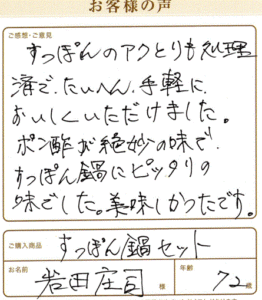 お客様の声
ご感想・ご意見
すっぽんのアクとりも処理
済で、たいへん、手軽に
おいしくいただけました。
ポン酢が絶妙の味で、
すっぽん鍋にピッタリの
味でした。美味しかったです。
ご購入商品
すっぽん鍋セット
お名前
岩田庄司 様
年齢
72歳